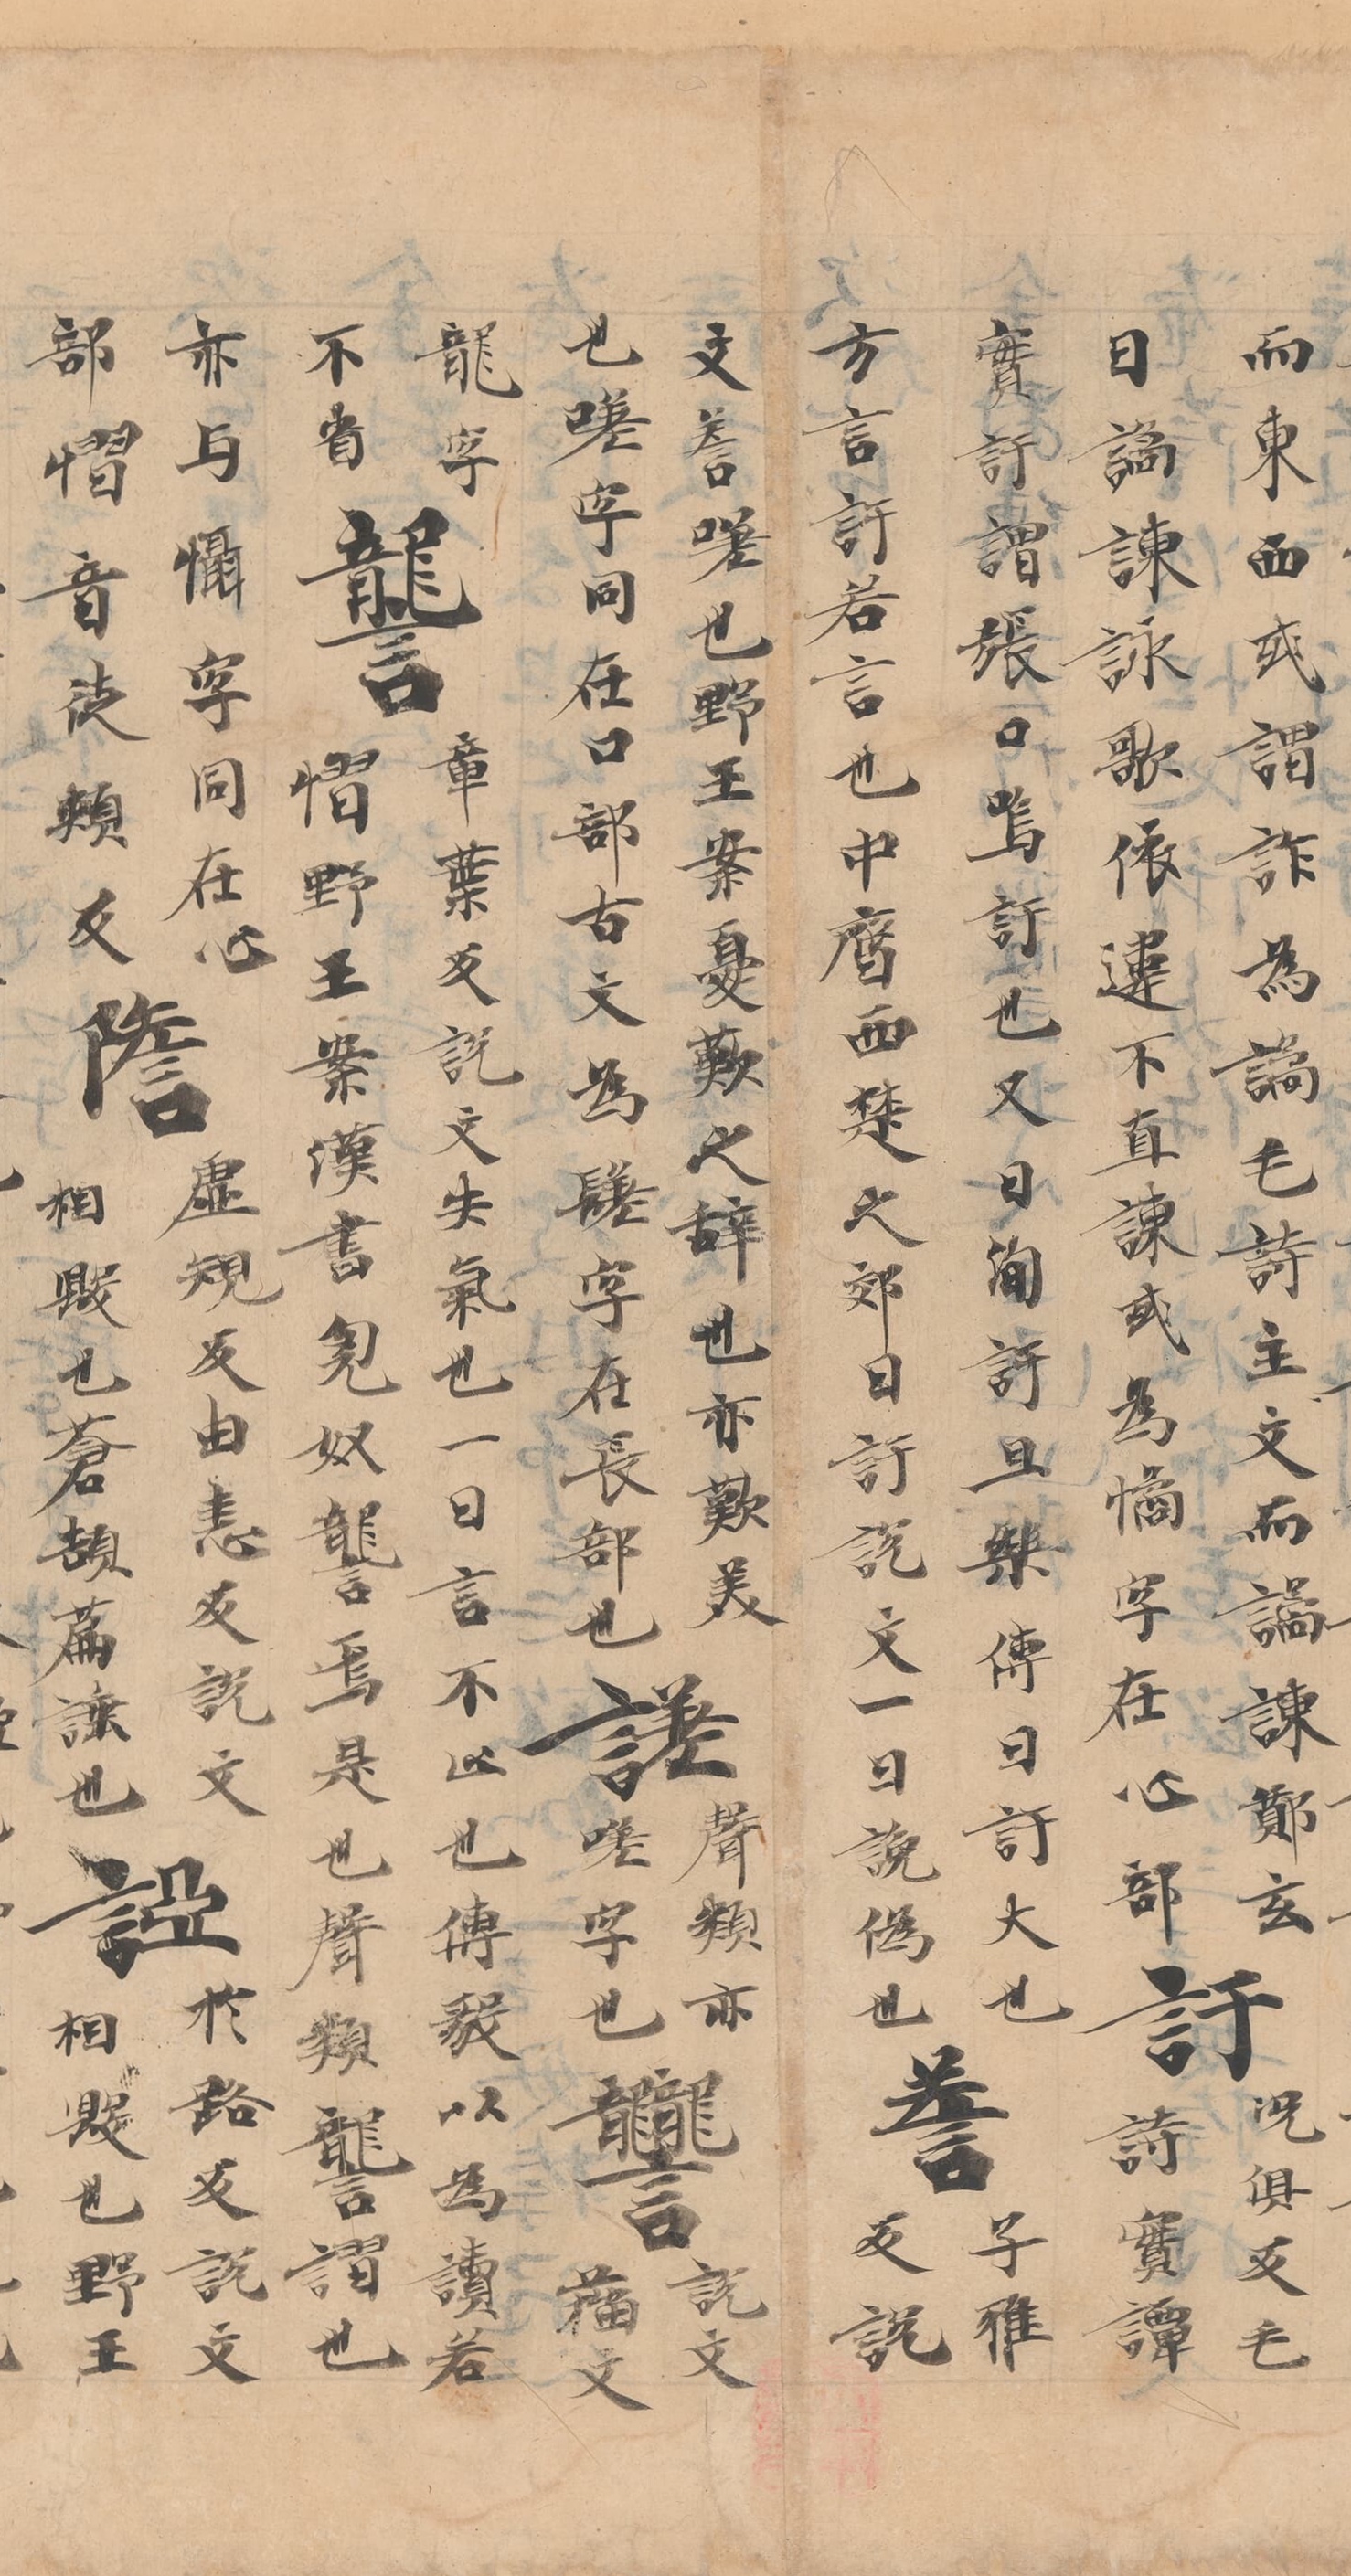 而東西或謂詐為譎毛詩主文而譎諫鄭玄
曰譎諫詠歌依違不直諫或為憰字在心部
訏
況俱反毛
詩實譚
實訏謂張口嗚訏也又曰洵訏且樂傳曰訏大也
方言訏若言也中齊西楚之郊曰訏說文一曰說偽也
子雅
反說
文嗟也野王案憂歎之辞也亦歎美
也嗟字同在口部古文為𨲠字在長部也
𧪘
聲類亦
嗟字也
𧮩
說文
籀文
龍字
不省
讋
章葉反說文失氣也一曰言不止也傅毅以為讀若
慴野王案漢書匈奴讋焉是也聲類讋謂也
亦与懾字同在心
部慴音徒頰反
䜐
虛規反由恚反說文
相毀也蒼頡篇諫也
䛩
於路反說文
相毀也野王